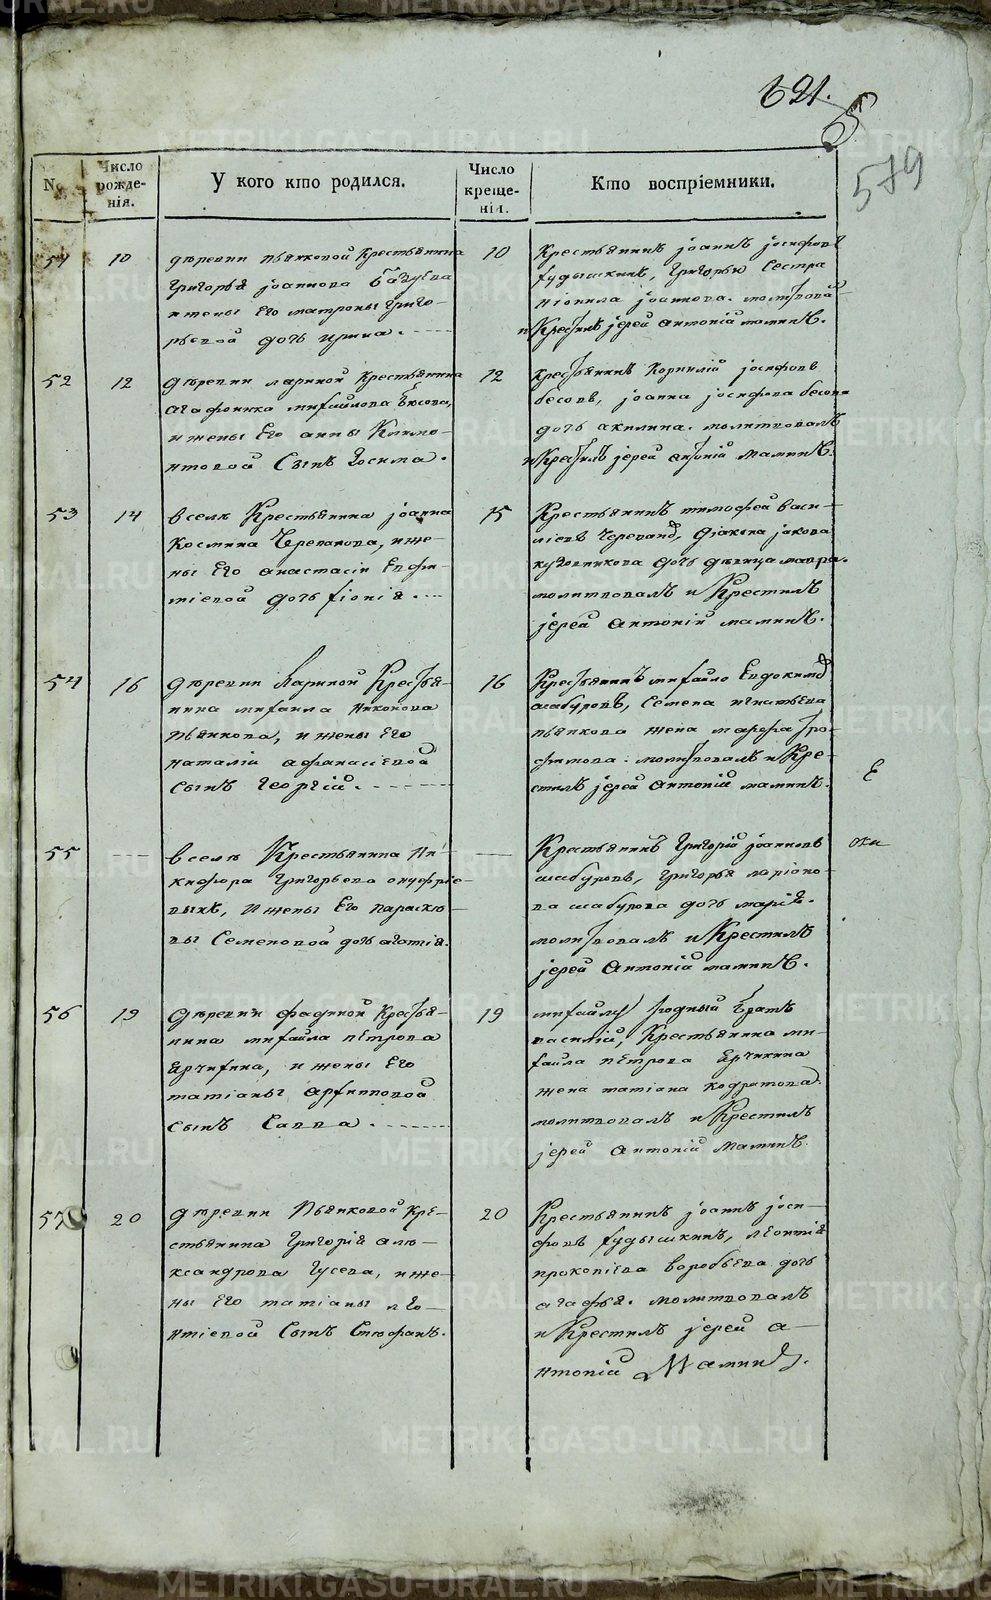 621.
579
№
Число рожде-нія.
У кого кто родился.
Число креще-нія.
Кто воспріемники.
51
10
деревни пьянковой Крестьянина
григорья іоаннова
и жены Его матроны григо-
рьевой дочь ирина.
10
Крестьянинъ іоаннъ іосифовъ
григорью Сестра
іоаннова. молитвовал
и Крестилъ іерей антоній маминъ.
52
12
деревни лариной крестьянина
агафоника михайлова бесова,
и жены Его анны Климо-
нтовой Сынъ Зосима.
12
крестьянинъ Корнилій іосифовъ
бесовъ, іоанна іосифова бесова
дочь акилина. молитвовалъ
и Крестилъ іерей антоній маминъ.
53
14
в селе Крестьянина іоанна
Космина Черепанова, и же-
ны Его анастасіи Евфи-
міевой дочь
15
Крестьянинъ тимофей васи-
ліевъ Черепановъ, діакона іакова
дочь девица мавра.
молитвовалъ и Крестилъ
іерей антоній маминъ.
54
16
деревни Лариной Крестья-
нина михаила Никонова
пьянкова, и жены Его
наталіи афанасіевой
сынъ георгій.
16
Крестьянинъ михайло Евдокимовъ
шабуровъ, Семена игнатьева
пьянкова жена марфа тро-
фимова. молитвовалъ и Кре-
стилъ іерей антоній маминъ.
55
в селе Крестьянина Ни-
кифора григорьева онуфріе-
выхъ, и жены Его параске-
вы Семеновой дочь агапія.
Крестьянинъ григорій іоанновъ
шабуровъ, григорья ларіоно-
ва шабурова дочь марія.
молитвовалъ и Крестилъ
іерей антоній маминъ.
56
19
деревни фадиной Крестья-
нина михаила петрова
и жены Его
татіаны архиповой
сынъ Савва.
19
михайлу родный братъ
василій, Крестьянина ми-
хайла петрова
жена татіана
молитвовалъ и Крестилъ
іерей антоній маминъ.
57
20
деревни Пьянковой Кре-
стьянина григорія але-
ксандрова гусева, и же-
ны Его татіаны лео-
нтіевой Сынъ Стефанъ.
20
Крестьянинъ іоаннъ іоси-
фовъ леонтія
прокопіева воробьева дочь
агафья. молитвовалъ
и Крестилъ іерей а-
нтоній Маминъ.
METRIKI.GASO-URAL.RU